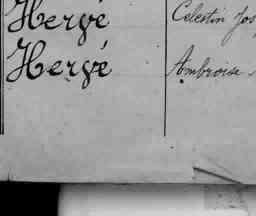 Hervé Celestin Jos
Hervé Ambroise